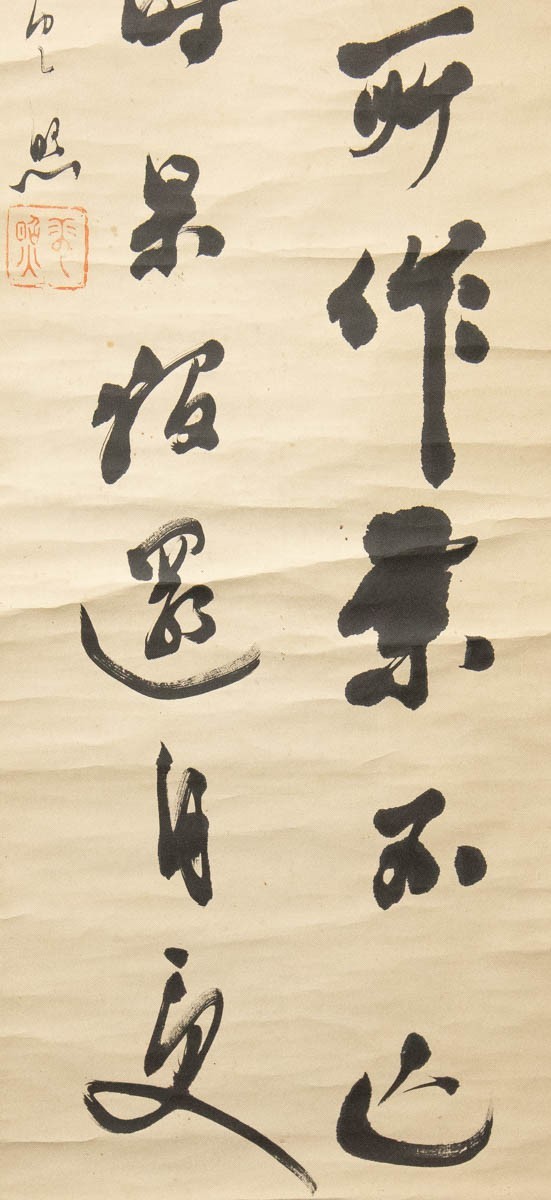 所作業不亡
時果報還自受
照